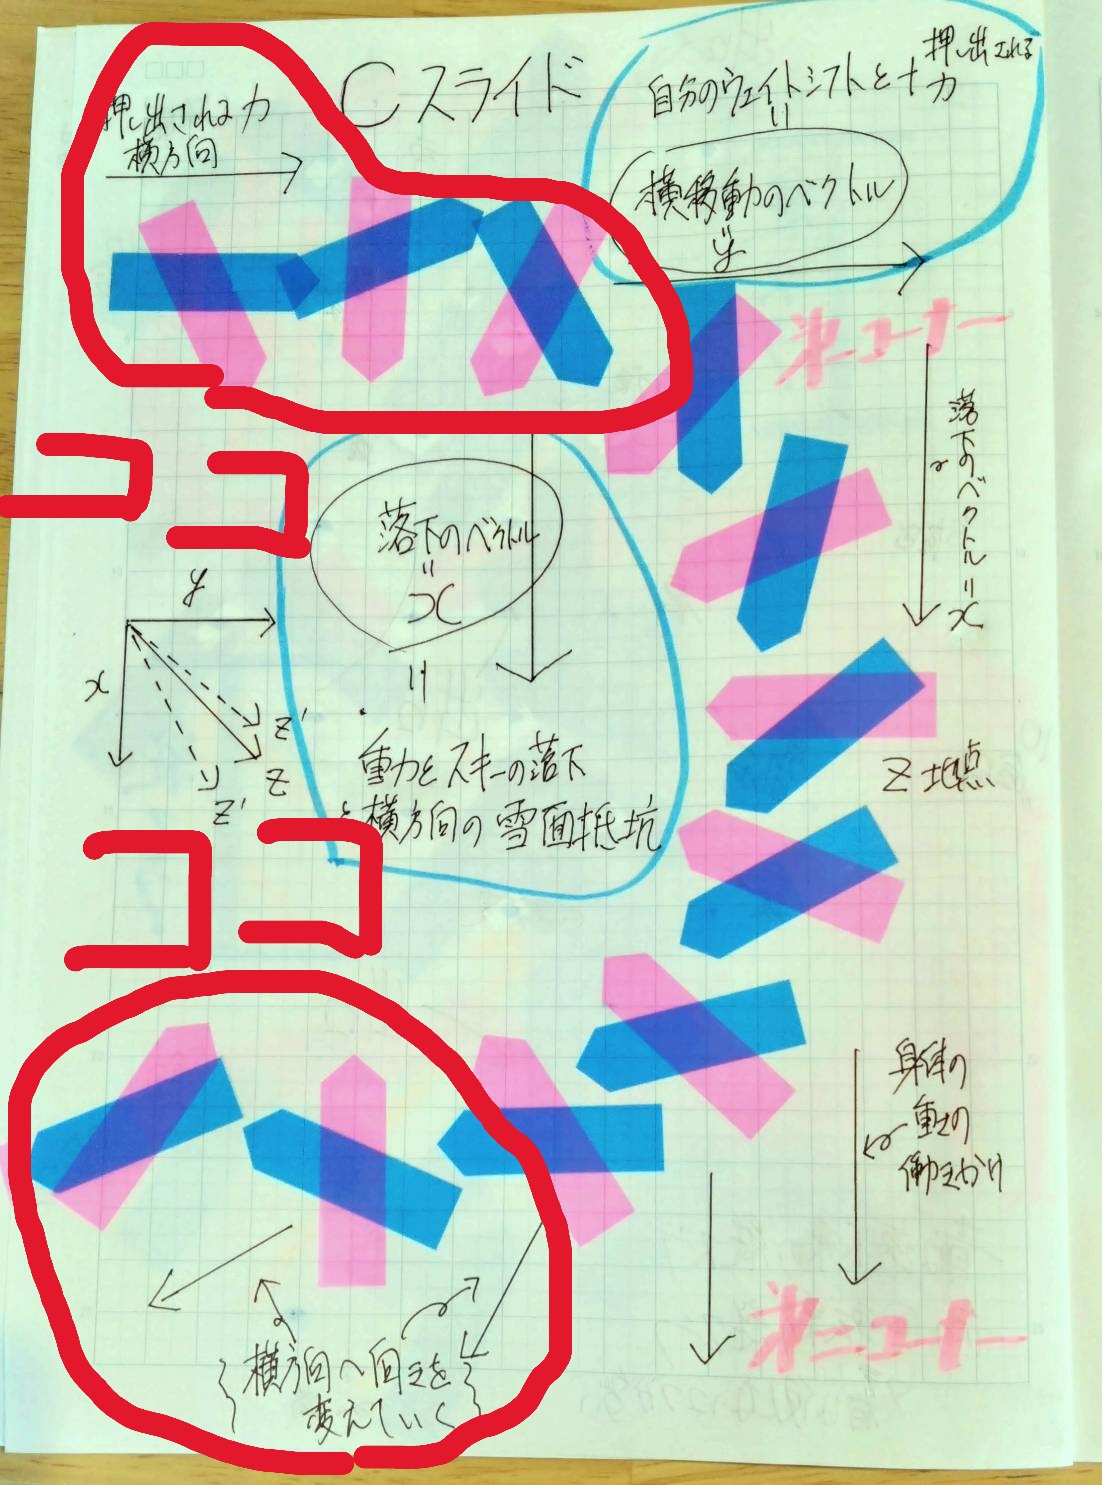 Cスライド
押し出される力
横方向
押し出される
自分のウェイトシフトと+力
=
横移動のベクトル
=
y
第一コーナー
落下のベクトル=x
ココ
落下のベクトル
=
x
=
重力とスキーの落下
と横方向の雪面抵坑
y
x
z'
z
z'
Z地点
ココ
身体の
重さの
働きかけ
第二コーナー
横方向へ向きを
変えていく